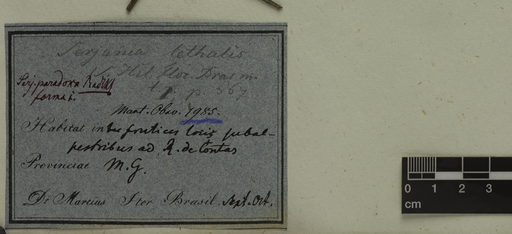 Serjania lethalis
St Hil. flor. Bras. m.
t. 1. p. 367
Serj. paradoxa Radlk
forma 1.
Mart. Obsv. 1985.
Habitat inter frutices locis subal-
pestribus ad R. de Contas
Provinciae M. G.
Dr Martius Iter Brasil. Sept. Oct.
0 1 2 3
cm